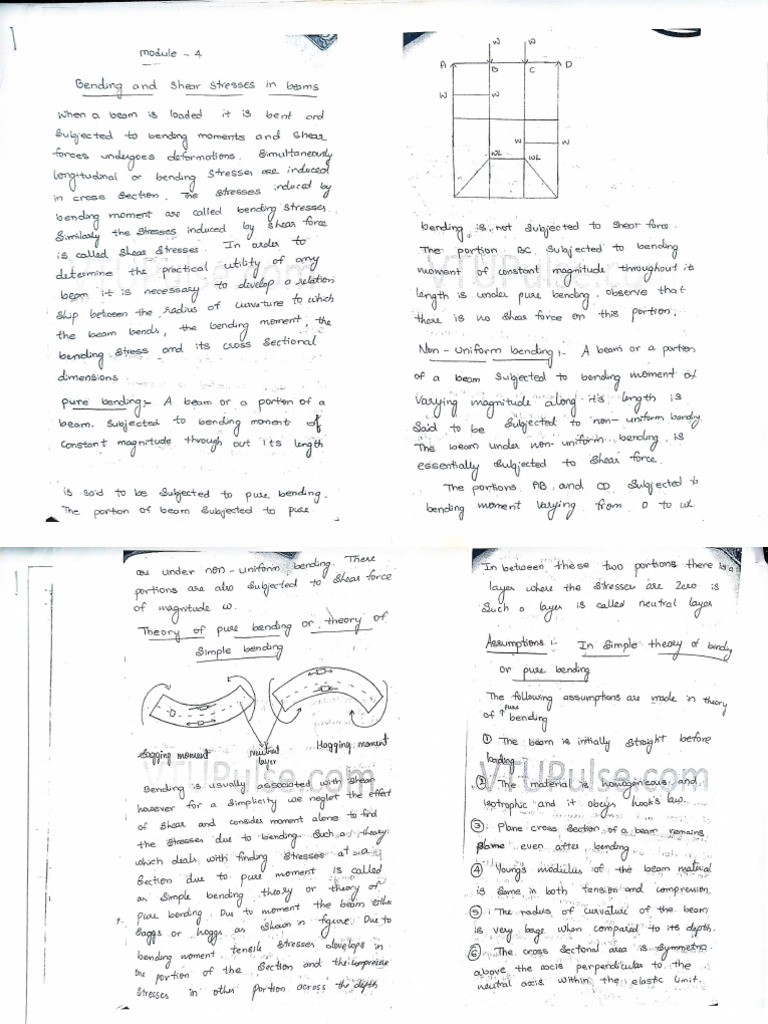 1
Module - 4
Bending and shear stresses in beams
When a beam is loaded it is bent and
Subjected to bending moments and shear
forces undergoes deformations. Simultaneously
longitudinal or bending stresses are induced
in cross section. The stresses induced by
bending moment are called bending stresses.
Similarly the stresses induced by shear force
is called shear stresses. In order to
determine the practical utility of any
beam it is necessary to develop a relation
ship between the radius of curvature to which
the beam bends, the bending moment, the
bending stress and its cross sectional
dimensions
pure bending:- A beam or a portion of a
beam. subjected to bending moment of
constant magnitude through out its length
is said to be subjected to pure bending.
The portion of beam subjected to pure
W W
A B C D
W W
W W
WL WL
bending is not subjected to shear force.
The portion BC subjected to bending
moment of constant magnitude throughout it
length is under pure bending. observe that
there is no shear force on this portion.
Non-uniform bending:- A beam or a portion
of a beam subjected to bending moment of
varying magnitude along its length is
said to be subjected to non-uniform bending.
The beam under non-uniform bending is
essentially subjected to shear force.
The portions AB and CD subjected to
bending moment varying from 0 to WL
VTUPulse.com
VTUPulse.com
are under non-uniform bending. There
portions are also subjected to shear force
of magnitude w.
Theory of pure bending or theory of
simple bending
Sagging moment Neutral layer Hogging moment
Bending is usually associated with shear
however for a simplicity we neglet the effect
of shear and consider moment alone to find
the stresses due to bending. Such a theory
which deals with finding stresses at a
section due to pure moment is called
as simple bending theory or theory of
pure bending. Due to moment the beam either
saggs or hoggs as shown in figure. Due to
bending moment tensile stresses develops in
the portion of the section and the compressive
stresses in other portion across the depth
In between these two portions there is a
layer where the stresses are zero is
such a layer is called neutral layer
Assumptions :- In simple theory of bending
or pure bending
The following assumptions are made in theory
of pure bending
1 The beam is initially straight before
loading
2 The material is homogeneous and
isotrophic and it obeys hook's law.
3 Plane cross section of a beam remains
plane even after bending
4 Young's modulus of the beam material
is same in both tension and compression.
5 The radius of curvature of the beam
is very large when compared to its depth.
6 The cross sectional area is symmetric
above the axis perpendicular to the
neutral axis within the elastic limit.
VTUPulse.com
VTUPulse.com